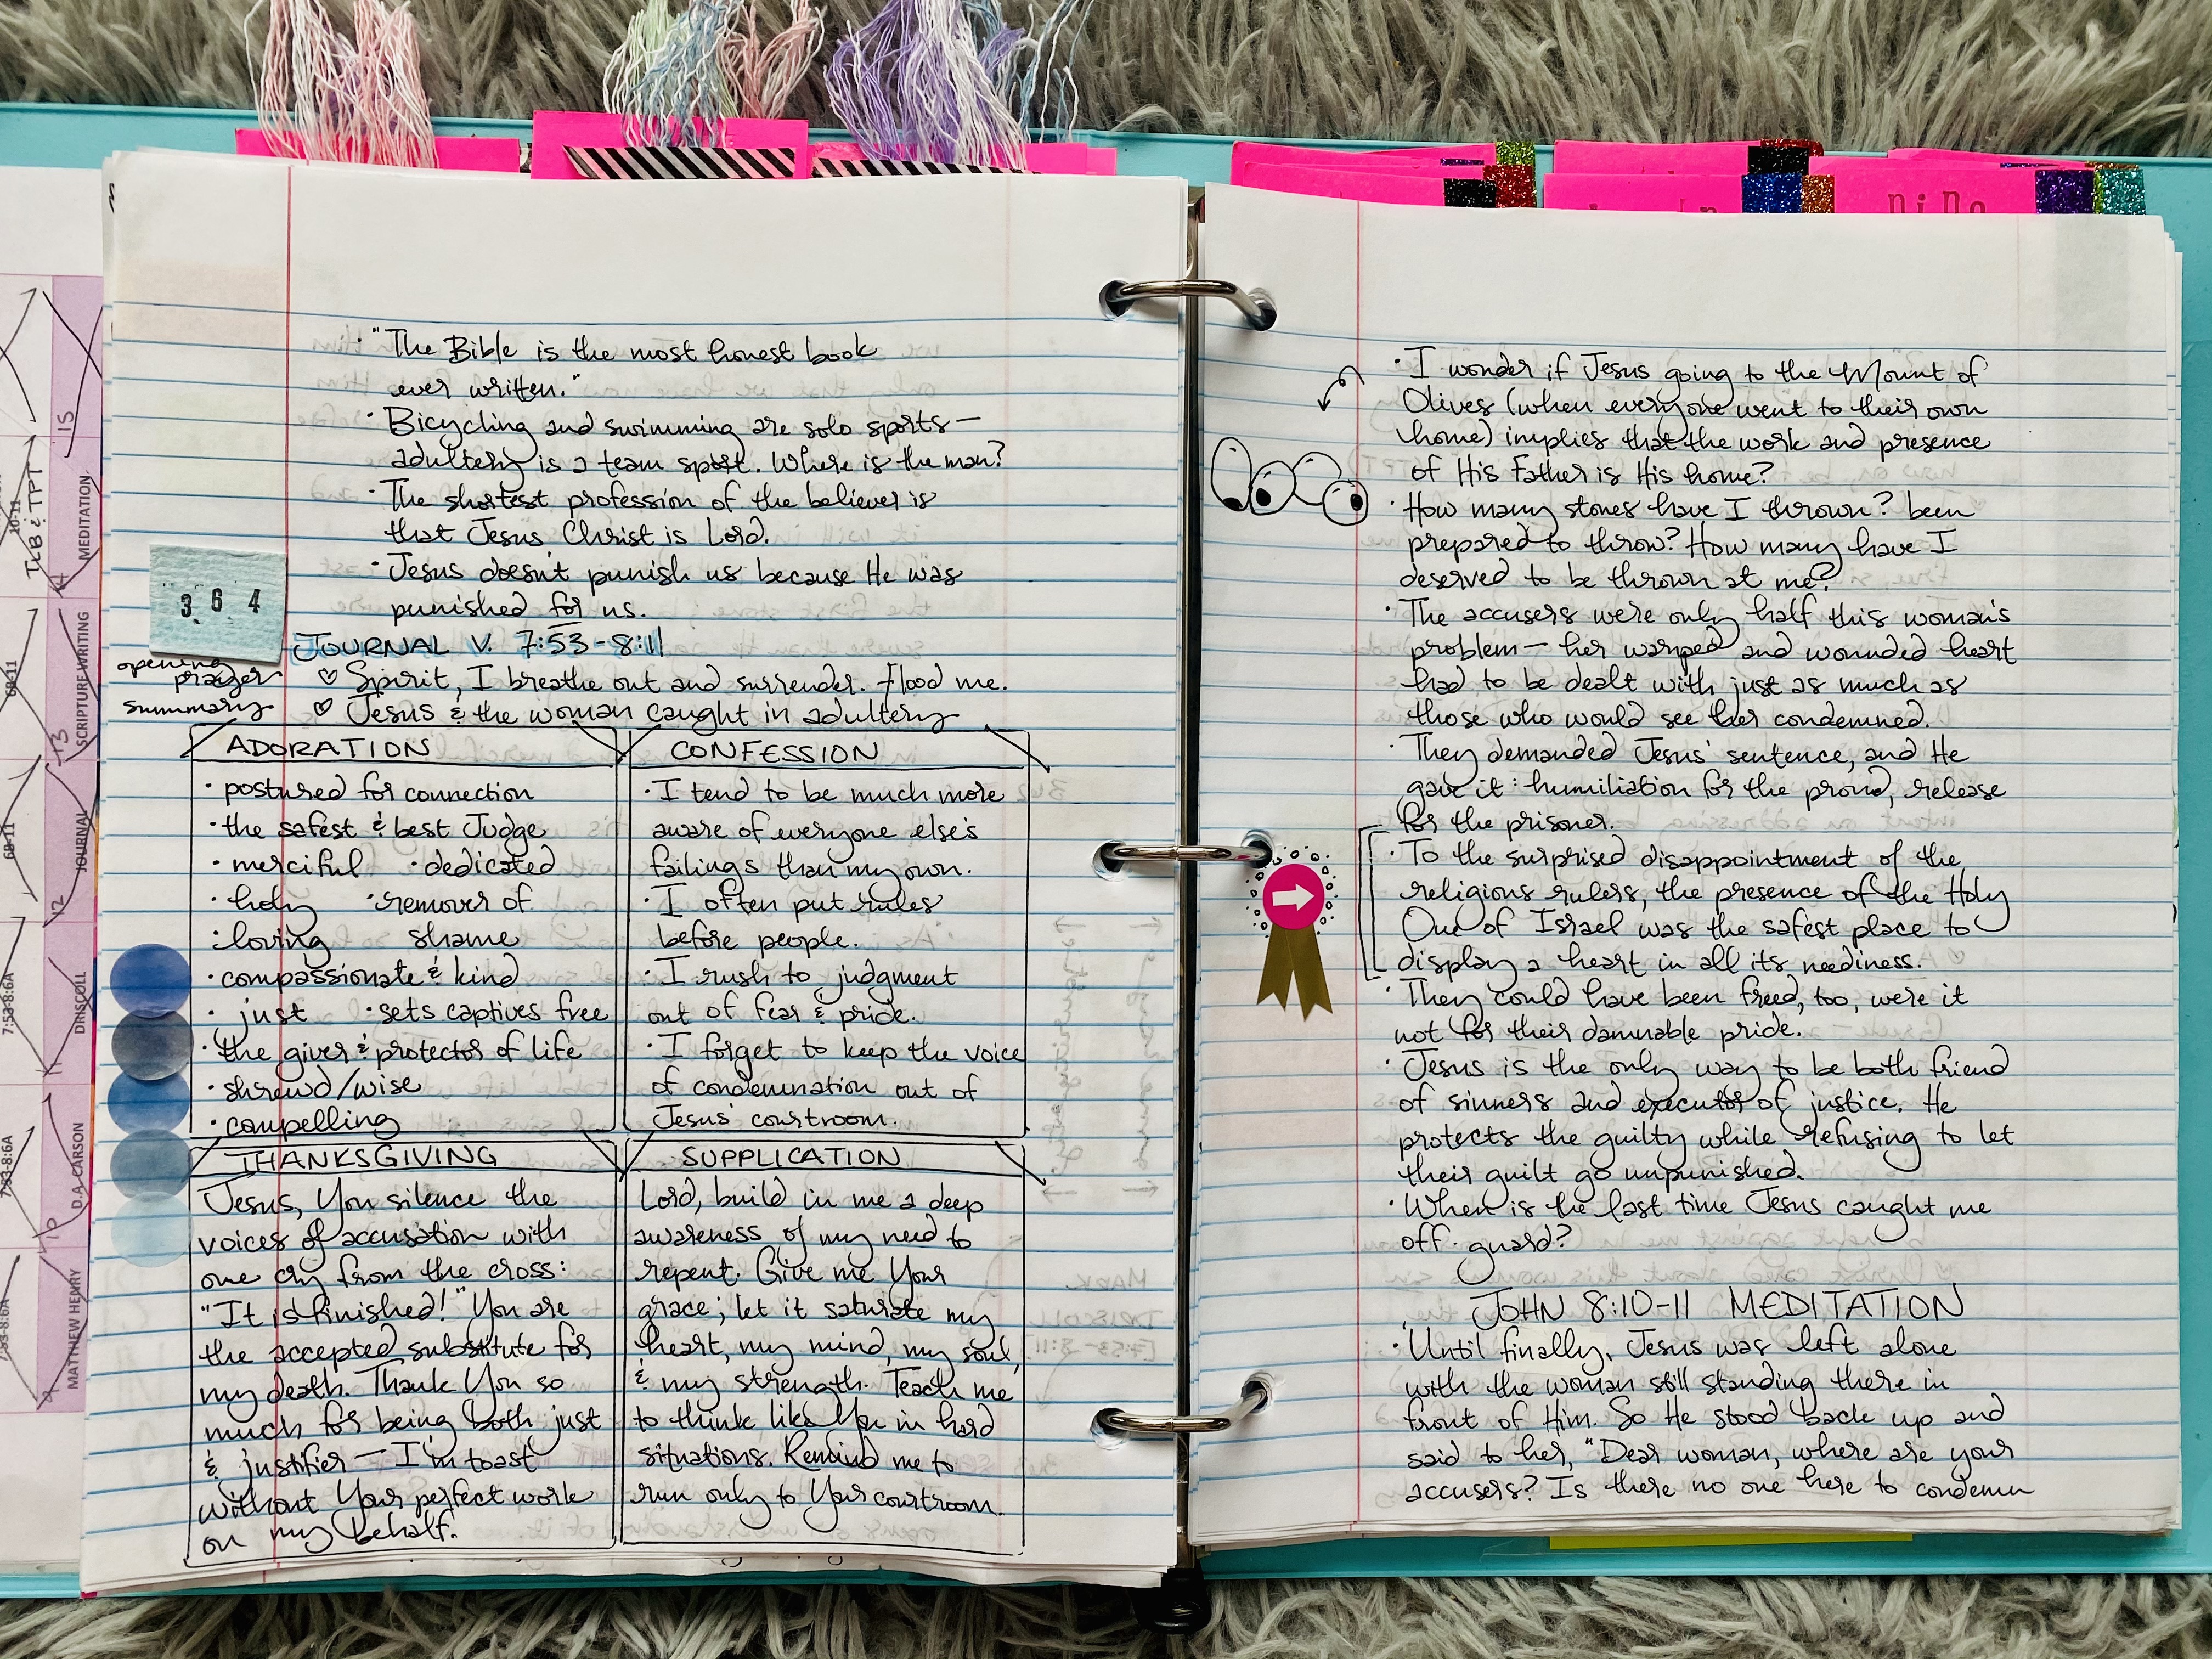 "The Bible is the most honest book
ever written."
· Bicycling and swimming are solo sports—
adultery is a team sport. Where is the man?
· The shortest profession of the believer is
that Jesus Christ is Lord.
· Jesus doesn't punish us because He was
punished for us.
364
JOURNAL V. 7:53-8:11
opening
prayer
♡ Spirit, I breathe out and surrender. Flood me.
summary
♡ Jesus & the woman caught in adultery
ADORATION
· postured for connection
· the safest & best Judge
· merciful · dedicated
· holy · remover of
· loving shame
· compassionate & kind
· just · sets captives free
· the giver & protector of life
· shrewd/wise
· compelling
CONFESSION
· I tend to be much more
aware of everyone else's
failings than my own.
· I often put rules
before people.
· I rush to judgment
out of fear & pride.
· I forget to keep the voice
of condemnation out of
Jesus' courtroom.
THANKSGIVING
Jesus, You silence the
voices of accusation with
one cry from the cross:
"It is finished!" You are
the accepted substitute for
my death. Thank You so
much for being both just
& justifier — I'm toast
without Your perfect work
on my behalf.
SUPPLICATION
Lord, build in me a deep
awareness of my need to
repent. Give me Your
grace; let it saturate my
heart, my mind, my soul,
& my strength. Teach me
to think like You in hard
situations. Remind me to
run only to Your courtroom.
· I wonder if Jesus going to the Mount of
Olives (when everyone went to their own
home) implies that the work and presence
of His Father is His home?
· How many stones have I thrown? been
prepared to throw? How many have I
deserved to be thrown at me?
· The accusers were only half this woman's
problem — her warped and wounded heart
had to be dealt with just as much as
those who would see her condemned.
· They demanded Jesus' sentence, and He
gave it: humiliation for the proud, release
for the prisoner.
· To the surprised disappointment of the
religious rulers, the presence of the Holy
One of Israel was the safest place to
display a heart in all its neediness.
· They could have been freed, too, were it
not for their damnable pride.
· Jesus is the only way to be both friend
of sinners and executor of justice. He
protects the guilty while refusing to let
their guilt go unpunished.
· When is the last time Jesus caught me
off-guard?
JOHN 8:10-11 MEDITATION
· Until finally, Jesus was left alone
with the woman still standing there in
front of Him. So He stood back up and
said to her, "Dear woman, where are your
accusers? Is there no one here to condemn
15
TLB & TPT
MEDITATION
14
SCRIPTURE WRITING
13
JOURNAL
12
7:53-8:6A
DRISCOLL
11
7:53-8:6A
D.A. CARSON
10
7:53-8:6A
MATTHEW HENRY
9